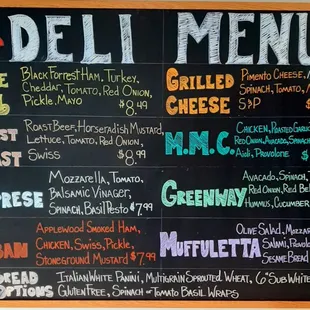 DELI MENU
Black Forrest Ham, Turkey,
Cheddar, Tomato, Red Onion,
Pickle, Mayo $8.49
Grilled Cheese
Pimento Cheese,
Spinach, Tomato,
S&P $
Roast Beef, Horseradish Mustard,
Lettuce, Tomato, Red Onion,
Swiss $8.99
M.M.C.
Chicken, Roasted Garlic
Red Onion, Avocado, Spinach
Aioli, Provolone $
Mozzarella, Tomato,
Balsamic Vinager,
Spinach, Basil Pesto $7.99
Greenway
Avocado, Spinach,
Red Onion, Red Bel
Hummus, Cucumber
Applewood Smoked Ham,
Chicken, Swiss, Pickle,
Stoneground Mustard $7.99
Muffuletta
Olive Salad,
Salami, Provolo
Sesame Bread
Bread Options
Italian White Panini, Multigrain Sprouted Wheat, 6" Sub White
Gluten Free, Spinach or Tomato Basil Wraps